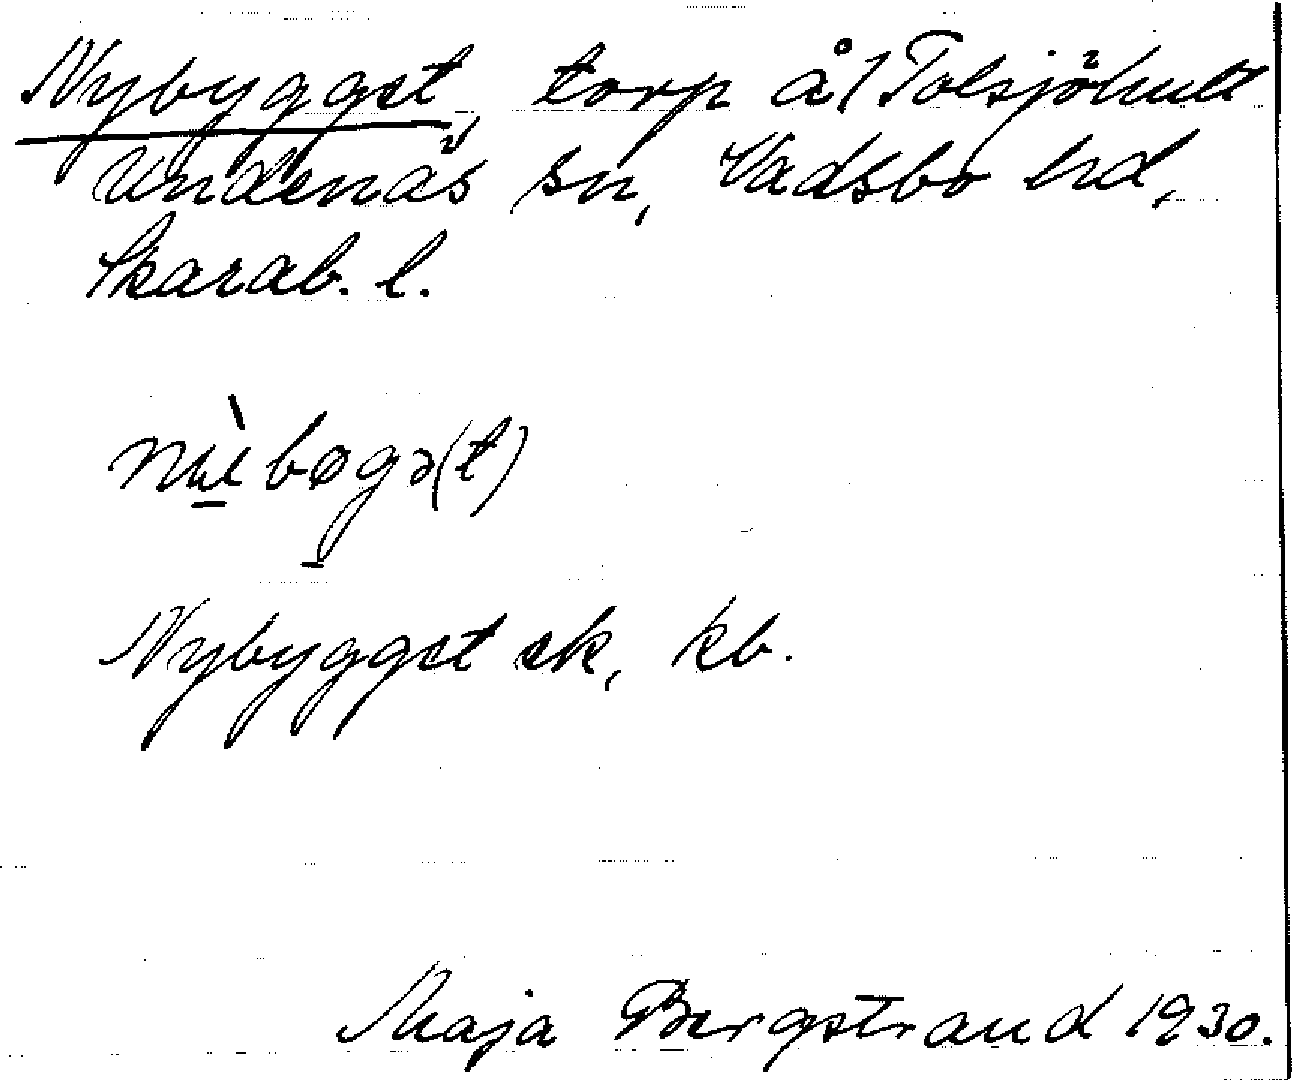 Nybygget, torp å 1 Tolsjöhult
Undenäs sn, Vadsbo hd,
Skarab. l.
bøgə(t)
Nybygget ek, kb.
Maja Bergstrand 1930.